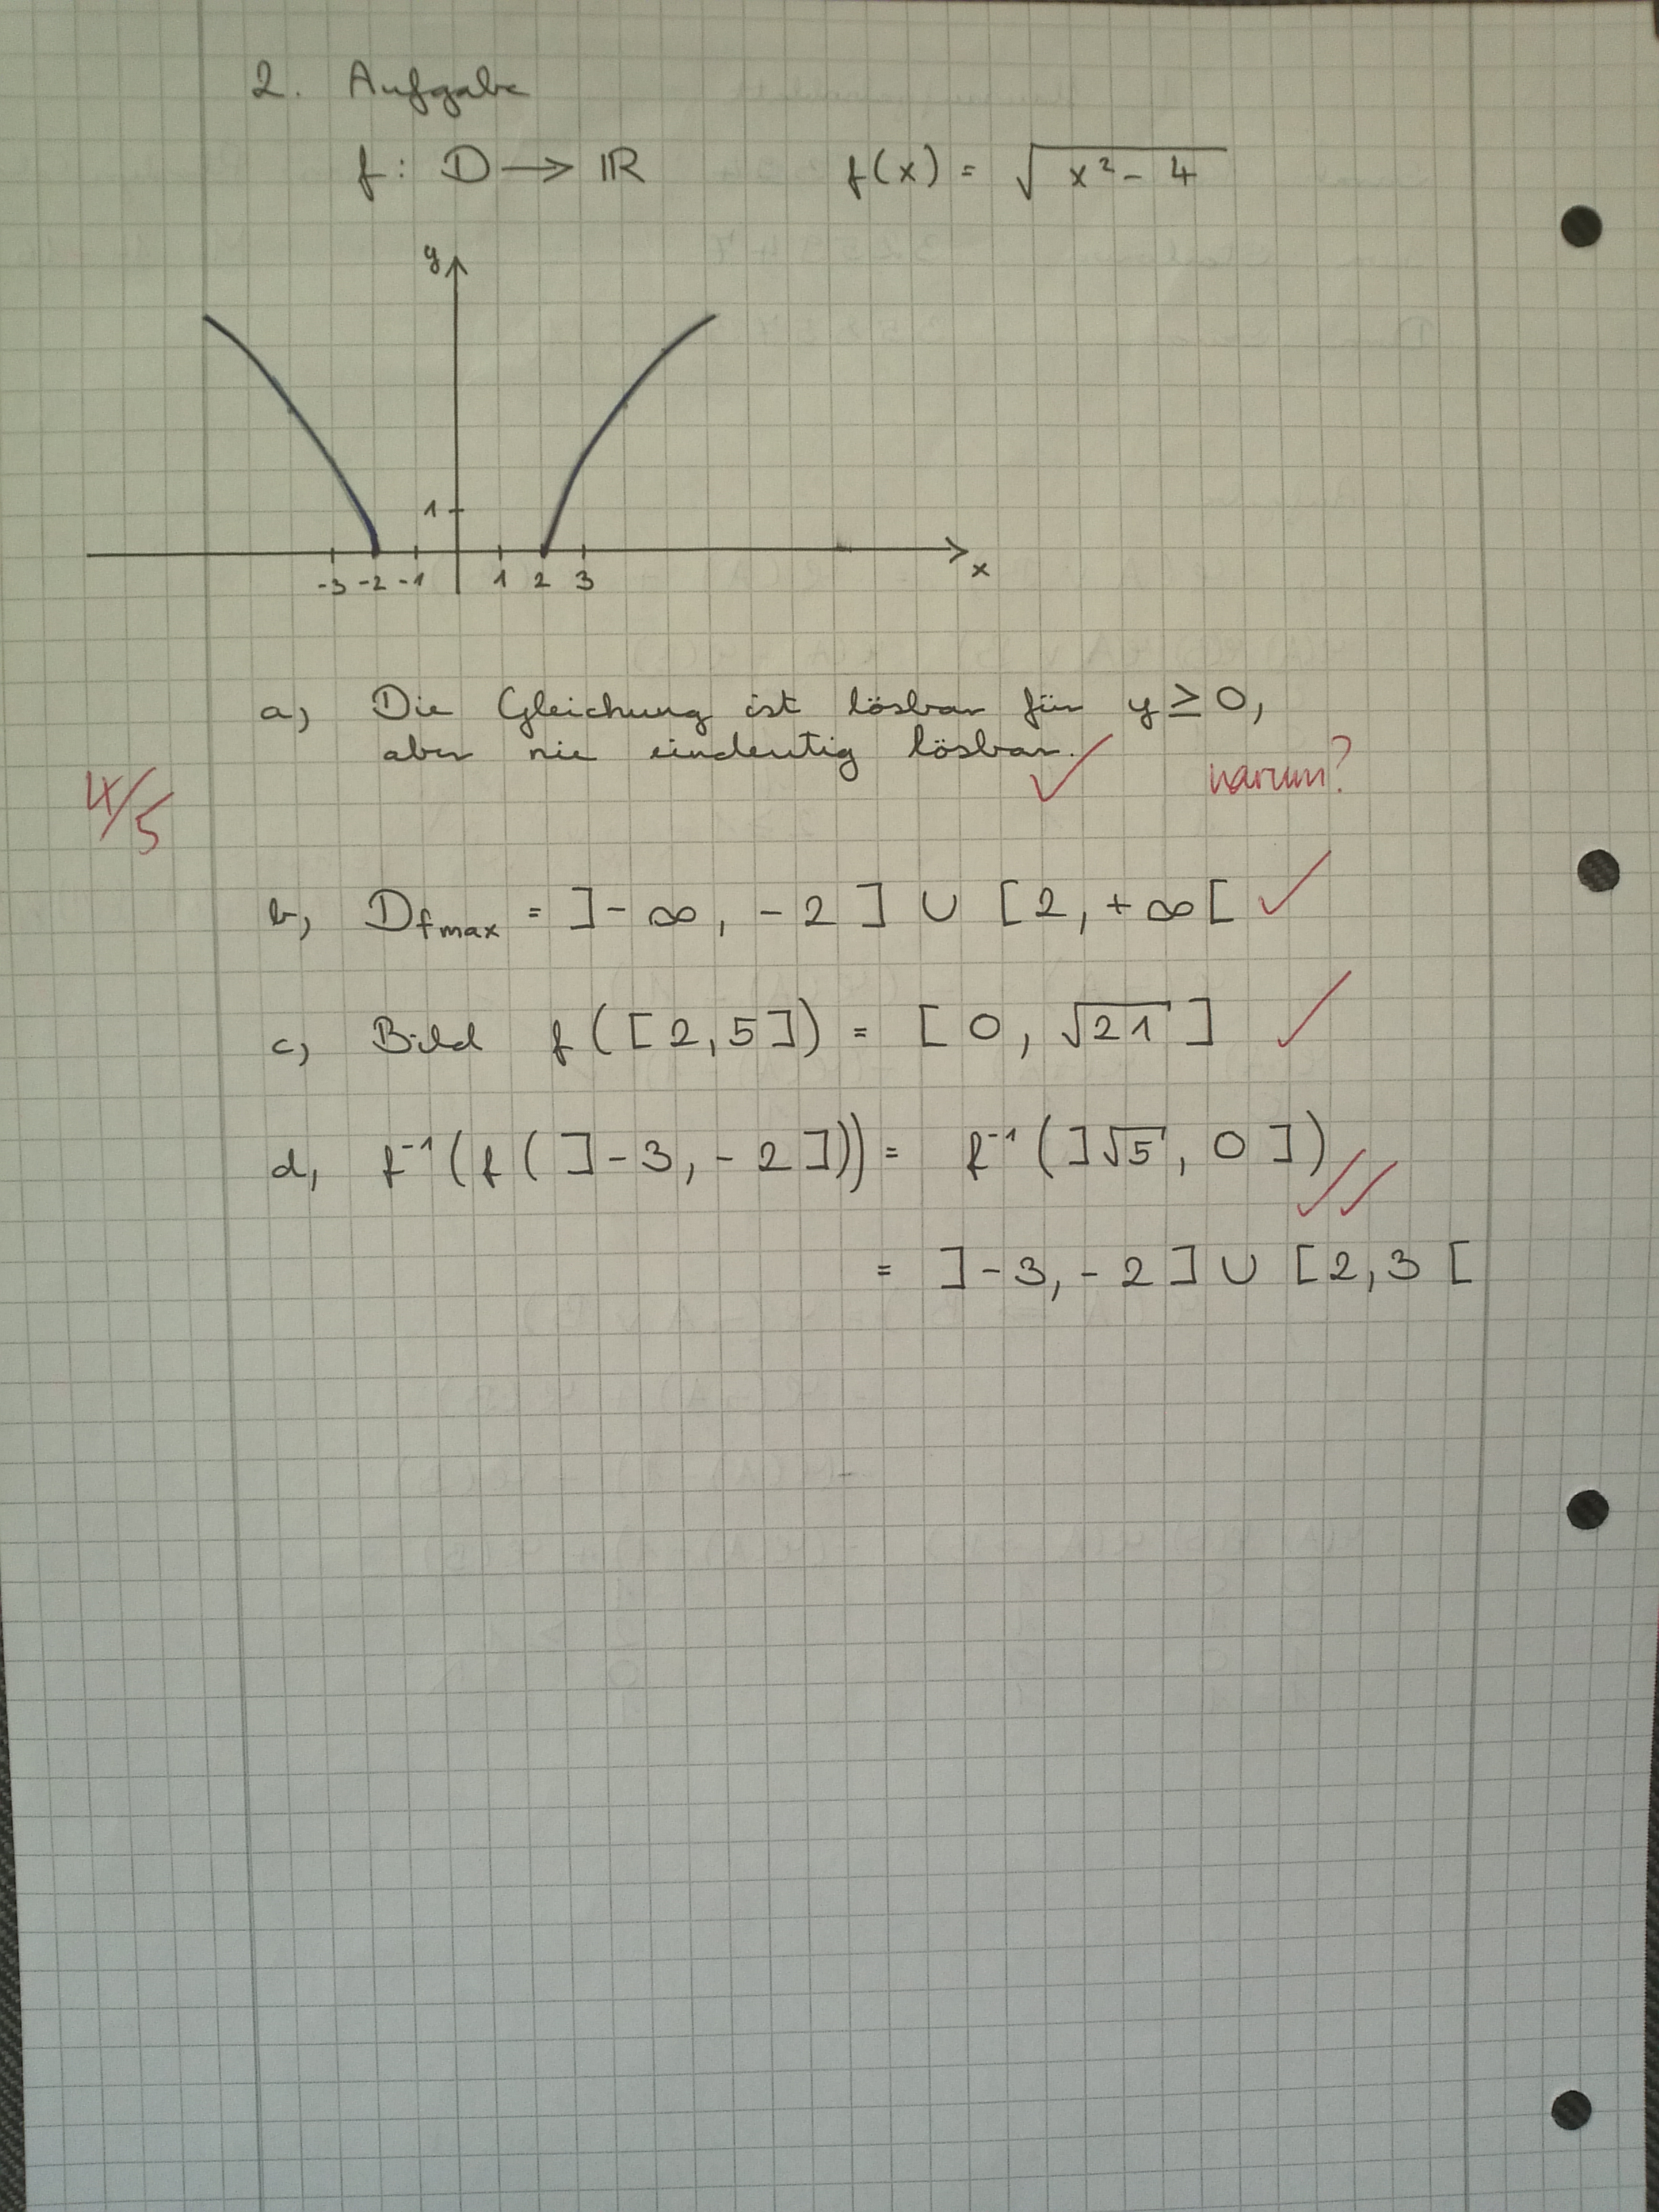 2. Aufgabe
f: D → ℝ f(x) = √(x² - 4)
y
1
-3 -2 -1 1 2 3 x
a) Die Gleichung ist lösbar für y ≥ 0,
aber nie eindeutig lösbar. ✓ warum?
4/5
b) D_fmax = ]-∞, -2] ∪ [2, +∞[ ✓
c) Bild f([2,5]) = [0, √21] ✓
d) f⁻¹(f(]-3, -2])) = f⁻¹(]√5, 0]) ✓✓
= ]-3, -2] ∪ [2,3[